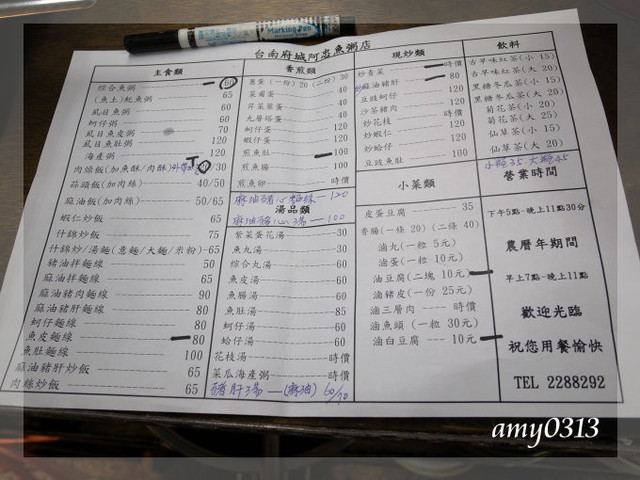 Marking Pen
台南府城阿忠魚粥店
主食類
綜合魚粥 60
(魚土)魠魚粥 65
虱目魚粥 60
蚵仔粥 60
虱目魚皮粥 70
虱目魚肚粥 120
海產粥 120
肉燥飯(加魚酥/肉酥) /30
蒜頭飯(加肉絲) 40/50
麻油飯(加肉絲) 50/65
蝦仁炒飯 65
什錦炒飯 75
什錦炒/湯麵(意麵/大麵/米粉)-65
豬油拌麵線 50
麻油拌麵線 65
麻油豬肉麵線 90
麻油豬肝麵線 80
蚵仔麵線 80
魚皮麵線 80
魚肚麵線 100
麻油豬肝炒飯 65
肉絲炒飯 65
香煎類
蔥蛋(一份)20(二份)30
菜脯蛋 40
芹菜蔥蛋 40
九層塔蛋 40
蚵仔蛋 120
蝦仔蛋 120
煎魚肚 100
煎魚腸 100
煎魚卵 時價
麻油豬心麵線—120
湯品類
麻油豬心湯—100
紫菜蛋花湯 30
魚丸湯 30
綜合丸湯 60
魚皮湯 60
魚腸湯 60
魚肚湯 85
蚵仔湯 60
蛤仔湯 60
花枝湯 時價
菜瓜海產粥 時價
豬肝湯—(麻油) 60/70
現炒類
炒青菜 時價
麻油豬肝 80
豆豉蚵仔 120
沙茶豬肉 120
炒花枝 120
炒蝦仁 120
炒蛤仔 120
豆豉魚肚 120
小菜類
皮蛋豆腐 35
香腸(一條 20)(二條 40)
滷丸(一粒 5元)
滷蛋(一粒 10元)
油豆腐(二塊 10元)
滷豬皮(一份 25元)
滷三層肉 時價
滷魚頭(一粒 30元)
滷白豆腐 10元
飲料
古早味紅茶(小 15)
古早味紅茶(大 20)
黑糖冬瓜茶(小 15)
黑糖冬瓜茶(大 20)
菊花茶(小 20)
菊花茶(大 25)
仙草茶(小 15)
仙草茶(大 20)
營業時間
下午5點-晚上11點30分
農曆年期間
早上7點-晚上11點
歡迎光臨
祝您用餐愉快
TEL 2288292
amy0313